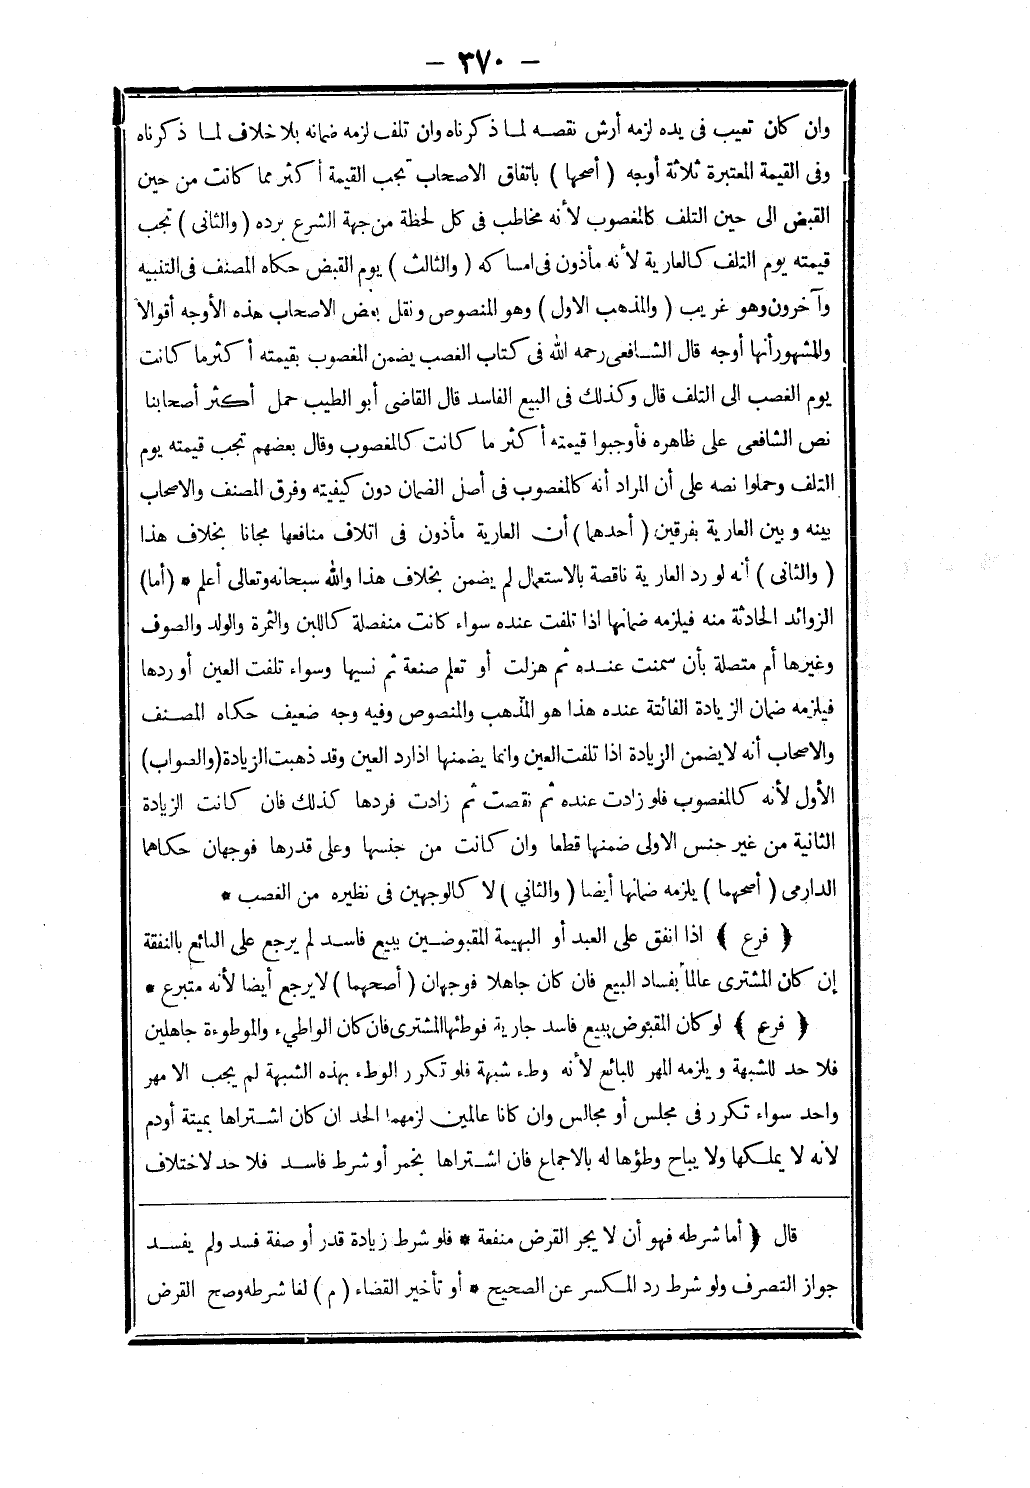 — ٣٧٠ —
وان كان تعيب فى يده لزمه أرش نقصه لما ذكرناه وان تلف لزمه ضمانه بلاخلاف لما ذكرناه
وفى القيمة المعتبرة ثلاثة أوجه ( أصحها ) باتفاق الاصحاب تجب القيمة أكثر مما كانت من حين
القبض الى حين التلف كالمغصوب لأنه مخاطب فى كل لحظة من جهة الشرع برده ( والثانى ) تجب
قيمته يوم التلف كالعارية لأنه مأذون فى امساكه ( والثالث ) يوم القبض حكاه المصنف فى التنبيه
وآخرون وهو غريب ( والمذهب الاول ) وهو المنصوص ونقل بعض الاصحاب هذه الأوجه أقوالا
والمشهور أنها أوجه قال الشافعى رحمه الله فى كتاب الغصب يضمن المغصوب بقيمته أكثر ما كانت
يوم الغصب الى التلف قال وكذلك فى البيع الفاسد قال القاضى أبو الطيب حمل أكثر أصحابنا
نص الشافعى على ظاهره فأوجبوا قيمته أكثر ما كانت كالمغصوب وقال بعضهم تجب قيمته يوم
التلف وحملوا نصه على أن المراد أنه كالمغصوب فى أصل الضمان دون كيفيته وفرق المصنف والاصحاب
بينه وبين العارية بفرقين ( أحدهما ) أن العارية مأذون فى اتلاف منافعها مجانا بخلاف هذا
( والثانى ) أنه لو رد العارية ناقصة بالاستعمال لم يضمن بخلاف هذا والله سبحانه وتعالى أعلم * (أما)
الزوائد الحادثة منه فيلزمه ضمانها اذا تلفت عنده سواء كانت منفصلة كاللبن والثمرة والولد والصوف
وغيرها أم متصلة بأن سمنت عنده ثم هزلت أو تعلم صنعة ثم نسيها وسواء تلفت العين أو ردها
فيلزمه ضمان الزيادة الفائتة عنده هذا هو المذهب والمنصوص وفيه وجه ضعيف حكاه المصنف
والاصحاب أنه لا يضمن الزيادة اذا تلفت العين وانما يضمنها اذا رد العين وقد ذهبت الزيادة (والصواب)
الأول لأنه كالمغصوب فلو زادت عنده ثم نقصت ثم زادت فردها كذلك فان كانت الزيادة
الثانية من غير جنس الاولى ضمنها قطعا وان كانت من جنسها وعلى قدرها فوجهان حكاهما
الدارمى ( أصحهما ) يلزمه ضمانها أيضا ( والثاني ) لا كالوجهين فى نظيره من الغصب *
﴿ فرع ﴾ اذا انفق على العبد أو البهيمة المقبوضين ببيع فاسد لم يرجع على البائع بالنفقة
إن كان المشترى عالماً بفساد البيع فان كان جاهلا فوجهان ( أصحهما ) لا يرجع أيضا لأنه متبرع *
﴿ فرع ﴾ لو كان المقبوض ببيع فاسد جارية فوطئها المشترى فان كان الواطىء والموطوءة جاهلين
فلا حد للشبهة ويلزمه المهر للبائع لأنه وطء شبهة فلو تكرر الوطء بهذه الشبهة لم يجب الا مهر
واحد سواء تكرر فى مجلس أو مجالس وان كانا عالمين لزمهما الحد ان كان اشتراها بميتة أودم
لانه لا يملكها ولا يباح وطؤها له بالاجماع فان اشتراها بخمر أو شرط فاسد فلا حد لاختلاف
قال ﴿ أما شرطه فهو أن لا يجر القرض منفعة * فلو شرط زيادة قدر أو صفة فسد ولم يفسد
جواز التصرف ولو شرط رد المكسر عن الصحيح * أو تأخير القضاء ( م ) لغا شرطه وصح القرض